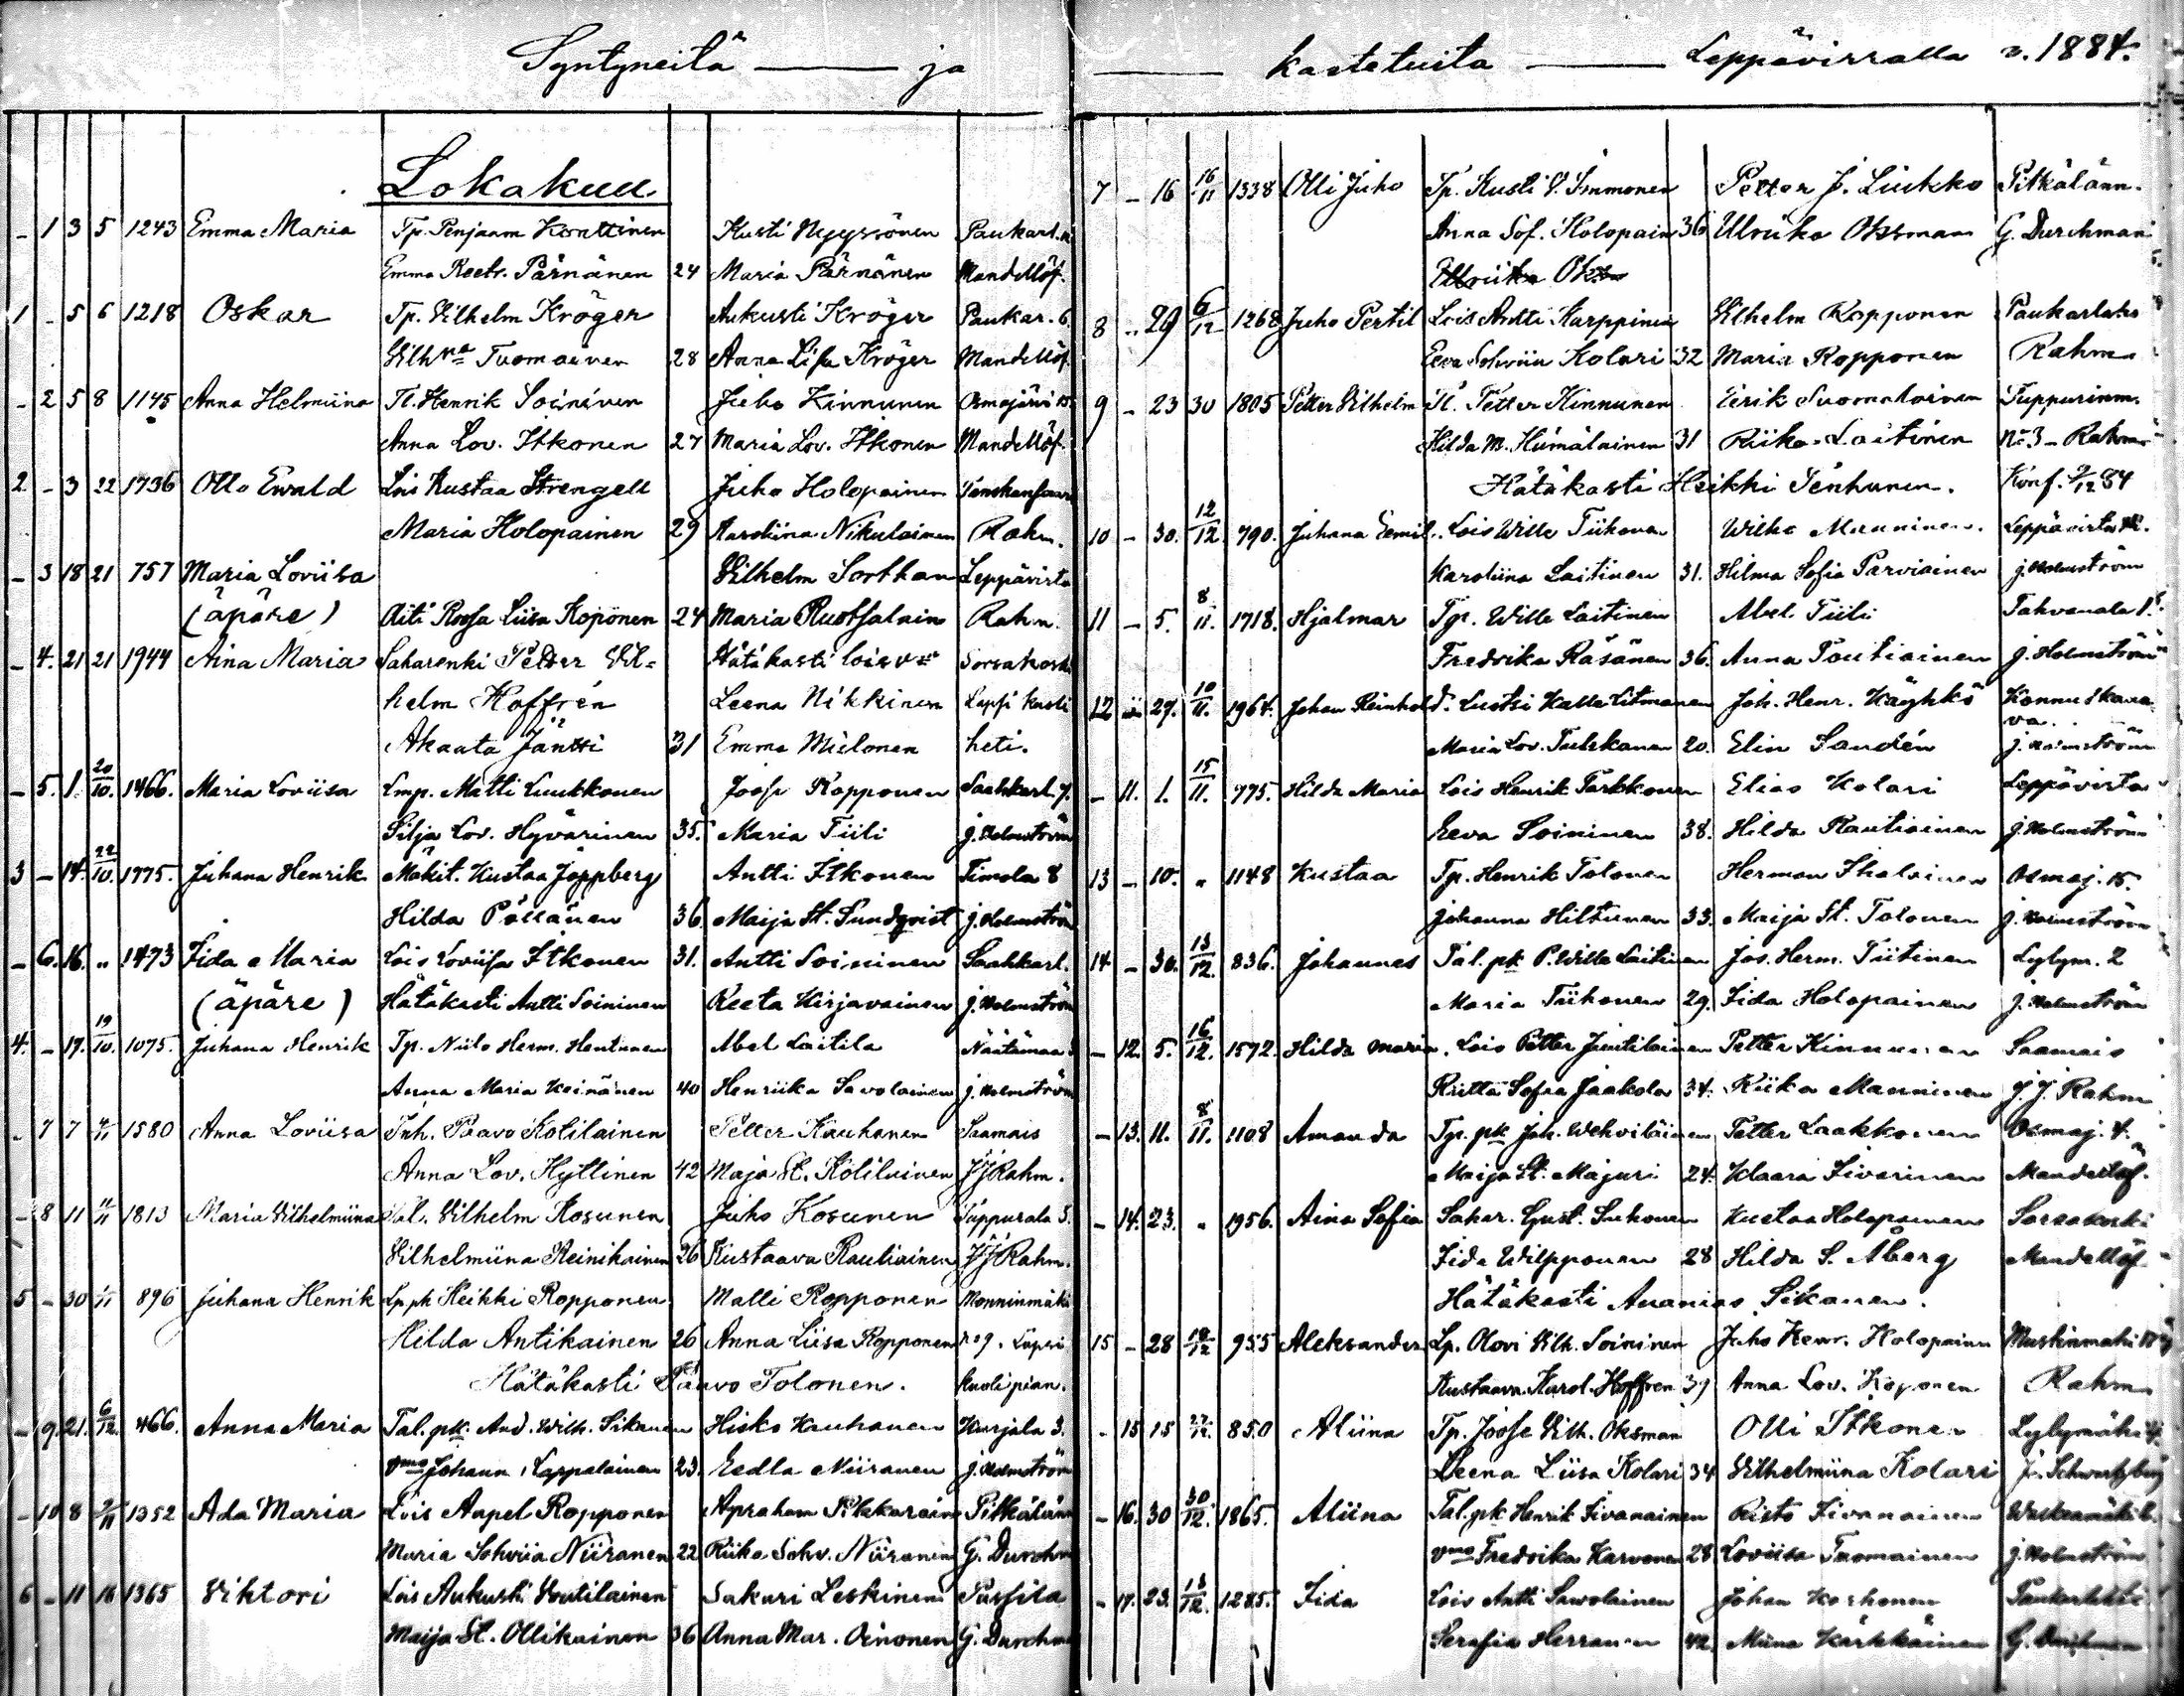 Syntyneitä — ja — kastetuita — Leppävirralla v. 1884.
Lokakuu
- 1 3 5 1243 Emma Maria Tp. Penjaam Konttinen Kusti Nyyssönen Paukarl.
Emma Reet. Pärnänen 24 Maria Pärnänen Mandellöf.
1 - 5 6 1218 Oskar Tp. Vilhelm Kröger Aukusti Kröger Paukar. 6.
Vilh:na Tuomainen 28 Anna Lisa Kröger Mandellöf.
- 2 5 8 1145 Anna Helmiina Tl. Henrik Soininen Juho Kinnunen Osmajärvi 15
Anna Lov. Itkonen 27 Maria Lov. Itkonen Mandellöf.
2 - 3 22 1736 Otto Ewald Lois Kustaa Strengell Juho Holopainen
Maria Holopainen 29 Karoliina Nikulainen Rahm.
- 3 18 21 757 Maria Loviisa Vilhelm Sorthan Leppävirta
(äpäre) Äiti Roosa Liisa Koponen 24 Maria Ruotsalain Rahm.
- 4. 21 21 1944 Aina Maria Saharenki Petter Vil= Hätäkasti Sorsakoski
helm Hoffrén Leena Nikkinen Lapsi kasti
Akaata Jäntti 31 Emma Mielonen heti.
- 5. 1. 20/10. 1466. Maria Loviisa Lmp. Matti Luukkonen Joose Ropponen Saahkarl. 7.
Silja Lov. Hyvärinen 35. Maria Tiili J. Holmström
3 - 14. 22/10. 1775. Juhana Henrik Mäkit. Kustaa Joppberg Antti Itkonen Timola 8
Hilda Pöllänen 36. Maija St. Sundqvist J. Holmström
- 6. 16. " 1473 Iida Maria Lois Loviisa Itkonen 31. Antti Soininen Saahkarl.
(äpäre) Hätäkasti Antti Soininen Reeta Kirjavainen J. Holmström
4. - 17. 19/10. 1075. Juhana Henrik Tp. Niilo Herm. Hentunen Abel Laitila Näätämaa
Anna Maria Keinänen 40 Henriika Savolainen J. Holmström
- 7 7 1580 Anna Loviisa Inh. Paavo Kotilainen Petter Kauhanen Saamais
Anna Lov. Hyttinen 42 Maja St. Kotilainen J J Rahm.
- 8 11 1813 Maria Vilhelmiina Tal. Vilhelm Kosunen Juho Kosunen Tuppurala 5.
Vilhelmiina Reinikainen 26 Kustaava Rautiainen J J Rahm.
5 - 30 896 Juhana Henrik Lp. pk Heikki Ropponen Matti Ropponen Monninmäki
Hilda Antikainen 26 Anna Liisa Ropponen no 9. Lapsi
Hätäkasti Paavo Tolonen. kuoli pian.
- 9. 21. 6/12. 466. Anna Maria Tal. pk. And. Wilh. Sikanen Hisko Kauhanen Kurjala 3.
vmo Johann. Lappalainen 23. Eedla Niiranen J. Holmström
- 10 8 1352 Ada Maria Lois Aapel Ropponen Apraham Pitkälänn
Maria Sohviia Niiranen 22 Riika Sohv. Niiranen G. Durchm
6 - 11 16 1365 Viktori Lois Aukusti Voutilainen Sakari Leskinen
Maija St. Ollikainen 36 Anna Mar. Oinonen G. Durchm
7 - 16 16/11 1338 Olli Juho Tp. Kusti V. Immonen Petter J. Liukko Pitkälänn.
Anna Sof. Holopain 36 Ulriika Oksman G. Durchman
Ulriika Oks
8 - 29 6/12 1268 Juho Pertil Lois Antti Karppinen Vilhelm Ropponen Paukarlahti
Eeva Sohviia Kolari 32 Maria Ropponen Rahm
9 - 23 30 1805 Petter Vilhelm Tl. Petter Kinnunen Eerik Suomalainen Tuppurinm.
Hilda M. Hämäläinen 31 Riika Laitinen No 3 - Rahm
Hätäkasti Heikki Tenhunen. Konf. 9/12 84
10 - 30. 12/12 790. Juhana Eemil. Lois Wille Tiihonen Wilho Manninen. Leppävirta
Karoliina Laitinen 31. Hilma Sofia Parviainen J. Holmström
11 - 5. 8/11. 1718. Hjalmar Tp. Wille Laitinen Abel Tiili Tahvanala 1.
Fredrika Räsänen 36. Anna Poutiainen J. Holmström
12 - 27. 10/11. 1964. Johan Reinhold. Luotsi Kalle Litmanen Joh. Henr. Käyhkö Konnuskana
va.
Maria Lov. Tulskanen 20. Elin Sandén J. Holmström
- 11. 1. 15/11. 775. Hilda Maria Lois Henrik Tarkkonen Elias Kolari Leppävirta
Eeva Soininen 38. Hilda Rautiainen J. Holmström
13 - 10. " 1148 Kustaa Tp. Henrik Tolonen Herman Ihalainen Osmaj. 15.
Johanna Hiltunen 33. Maija St. Tolonen J. Holmström
14 - 30. 13/12. 836. Johannes Tal. pk P. Wille Laitinen Jos. Herm. Tiitinen Lylym. 2
Maria Tiihonen 29. Iida Holopainen J. Holmström
- 12. 5. 16/12. 1572. Hilda Maria. Lois Petter Juutilainen Petter Kinnunen Saamais
Riitta Sofia Jaakola 34. Riika Manninen J. J. Rahm
- 13. 11. 8/11. 1108 Amanda Tp. pk Joh. Wehviläinen Petter Laakkonen Osmaj. 4.
Maija St. Majuri 24. Klaara Iivarinen Mandellöf.
- 14. 23. " 1956. Aina Sofia Sahar. Gust. Suhonen Kustaa Holopainen Sorsakoski
Iida Wilpponen 28 Hilda S. Åberg Mandellöf
Hätäkasti Ananias Sikanen.
15 - 28 955 Aleksander Lp. Olovi Vilh. Soininen Juho Henr. Holopainen Mustinmäki
Kustaava Karol. Hoffren 39 Anna Lov. Koponen Rahm
- 15 15 850 Aliina Tp. Joose Vilh. Oksman Olli Itkonen Lylymäki 4.
Leena Liisa Kolari 34 Vilhelmiina Kolari J. Schwartzberg
- 16. 30 30/12. 1865. Aliina Tal. pk Henrik Iivanainen Risto Iivanainen
vmo Fredrika Karvonen 28 Loviisa Tuomainen J. Holmström
- 17. 23. 13/12. 1285. Iida Lois Antti Sawolainen Johan Korhonen Paukarlahti
Serafia Herranen 42. Miina Kärkkäinen G. Durchman